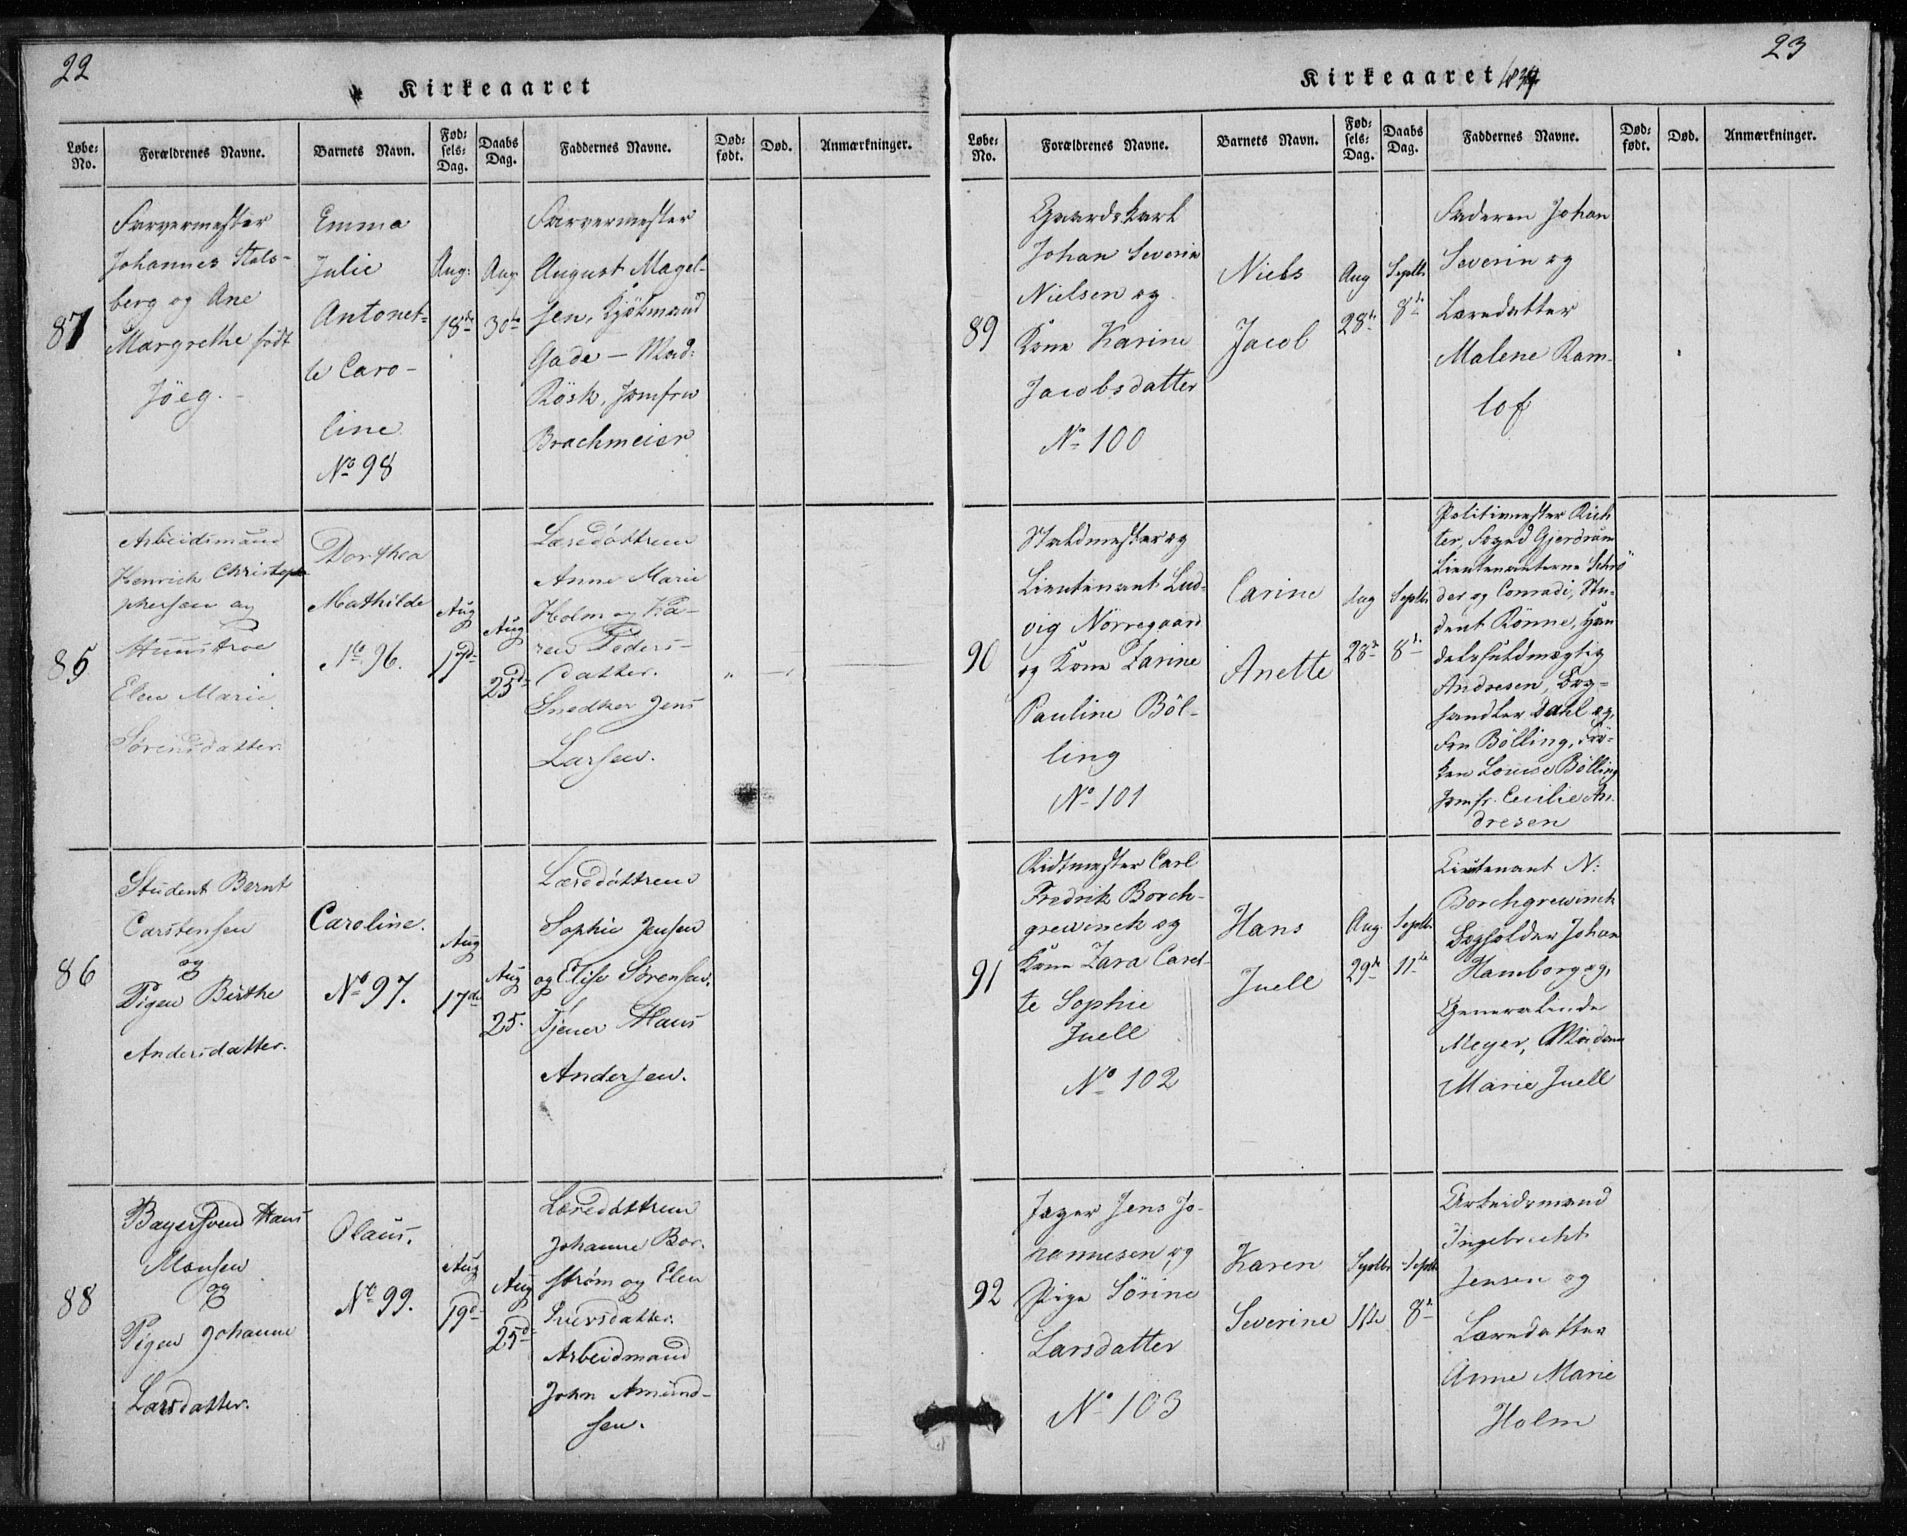 22
Kirkeaaret
Løbe-No. Forældrenes Navne. Barnets Navn. Fødsels-Dag. Daabs Dag. Faddernes Navne. Død-født. Død. Anmærkninger.
87
Farvermester
Johannes Stals-
berg og Ane
Margrethe født
Jöeg.
Emma
Julie
Antonet-
te Caro-
line
No 98
Aug:
18de
Aug
30te
Farvermester
August Magel-
sen, Kjöbmand
Gade – Mad:
Rösk, Jomfru
Brachmeier
85
Arbeidsmand
Henrich Christop-
phersen og
Huustroe
Elen Marie
Sørensdatter.
Dorthea
Mathilde
No 96.
Aug
17de
Aug
25d
Læredøttrene
Anne Marie
Holm og Ka-
ren Peders-
datter.
Snedker Jens
Larsen.
" —
86
Student Bernt
Carstensen
og
Pigen Birthe
Andersdatter.
Caroline.
No 97.
Aug
17de
Aug
25.
Læredøttrene
Sophie Jensen
og Elise Sørensen.
Tjener Hans
Andersen.
88
Bagersvend Hans
Monsen
og
Pigen Johanne
Larsdatter.
Olaus.
No 99.
Aug
19d
Aug
25d
Læredøttrene
Johanne Bor-
strøm og Elen
Iversdatter.
Arbeidmand
John Amund-
sen.
23
Kirkeaaret 1839
Løbe-No. Forældrenes Navne. Barnets Navn. Fødsels-Dag. Daabs Dag. Faddernes Navne. Død-født. Død. Anmærkninger.
89
Gaardskarl
Johan Severin
Nielsen og
Kone Karine
Jacobsdatter
No 100
Niels
Jacob
Aug
28de
Septbr
8de
Faderen Johan
Severin og
Læredatter
Malene Ram-
lof
90
Staldmester og
Lieutenant Lud-
vig Nörregaard
og Kone Karine
Pauline Böl-
ling
No 101
Carine
Anette
Aug
28de
Septbr
8de
Politimester Rich
ter, Foged Gjerdrum
Lieutenanterne Schrö
der og Conradi, Stu-
dent Rönne, Han
delsfuldmægtig
Andresen, Bog-
handler Dahl og,
Fru Bölling, Frö-
ken Louise Bölling
Jomfr. Cecilie An-
dresen
91
Ridtmester Carl
Fredrik Borch-
grewinck og
Kone Zara Caret-
te Sophie
Juell
No 102
Hans
Juell
Aug.
29de
Septbr
11te
Lieutenant N:
Borchgrewinck
Bogholder Johan
Hamborg og,
Generalinde
Meyer, Madame
Marie Juell
92
Jæger Jens Jo-
hannesen og
Pige Sörine
Larsdatter
No 103
Karen
Severine
Septbr
1ste
Septbr
8de
Arbeidsmand
Ingebrecht
Jensen og
Læredatter
Anne Marie
Holm